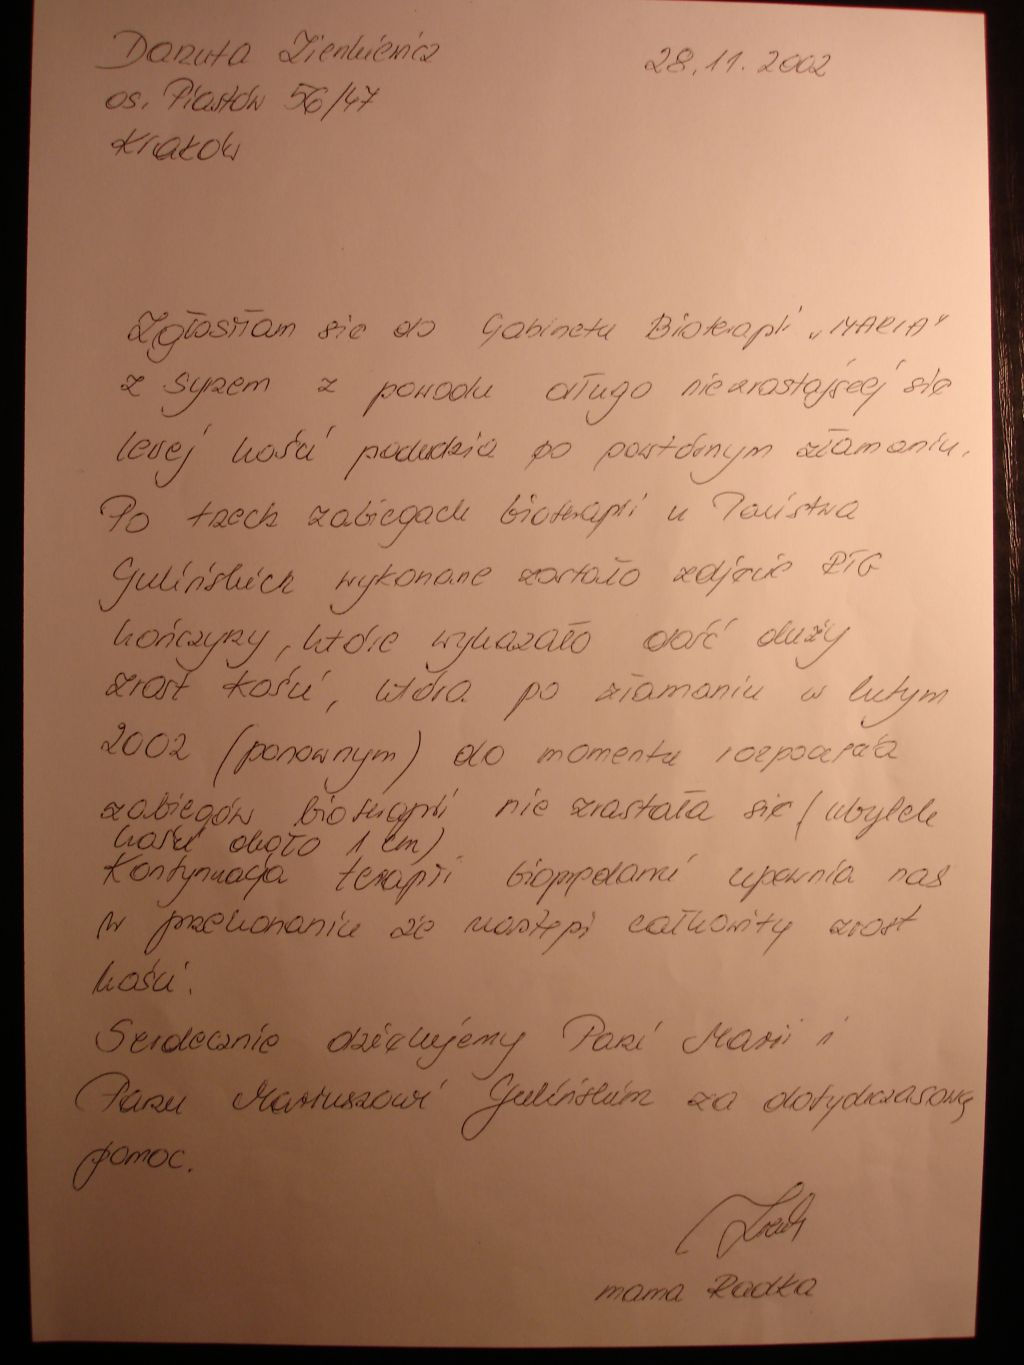 Danuta Zienkiewicz
28.11.2002
os. Piastów 56/47
Kraków
Zgłosiłam się do Gabinetu Bioterapii „MARIA"
z synem z powodu długo niezrastającej się
lewej kości podudzia po powtórnym złamaniu.
Po trzech zabiegach bioterapii u Państwa
Gulińskich wykonane zostało zdjęcie RTG
kończyny, które wykazało dość duży
zrost kości, która po złamaniu w lutym
2002 (ponownym) do momentu rozpoczęcia
zabiegów bioterapii nie zrastała się (ubytek
kości około 1 cm)
Kontynuacja terapii bioprądami upewnia nas
w przekonaniu że nastąpi całkowity zrost
kości.
Serdecznie dziękujemy Pani Marii i
Panu Mariuszowi Gulińskim za dotychczasową
pomoc.
mama Radka